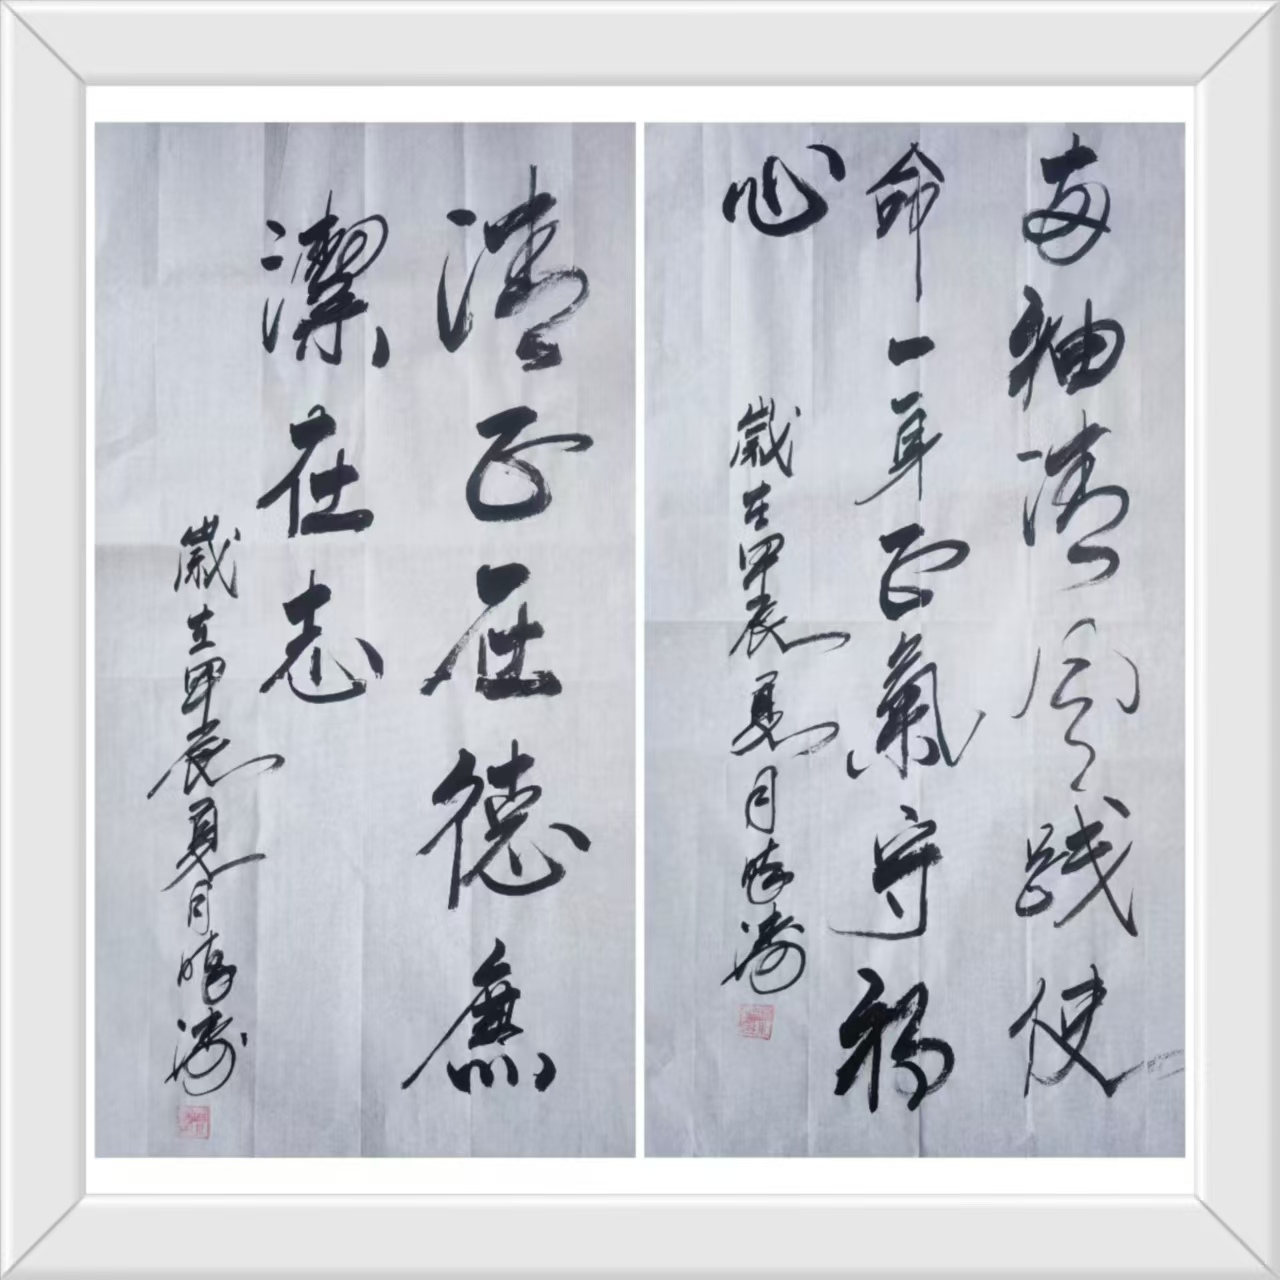 两袖清风践使
命一身正氣守初
心
歲在甲辰夏月
清正在德廉
潔在志
歲在甲辰夏月